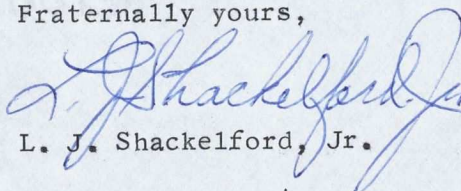 Fraternally yours,
L. J. Shackelford. Jr
L. J. Shackelford, Jr.